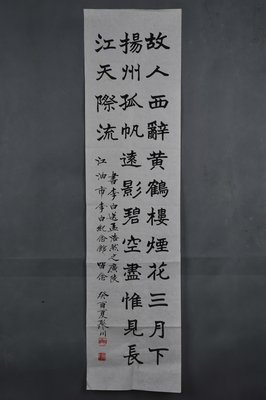 故人西辭黃鶴樓煙花三月下
揚州孤帆遠影碧空盡惟見長
江天際流
書李白送孟浩然之廣陵
江油市李白紀念館留念
癸酉夏